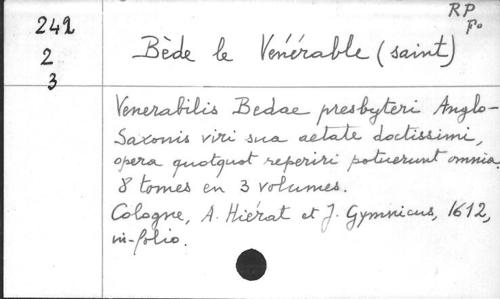 RP
242 Fo
2 Bède le Vénérable (saint)
3
Venerabilis Bedae presbyteri Anglo-
Saxonis viri sua aetate doctissimi,
opera quotquot reperiri potuerunt omnia.
8 tomes en 3 volumes.
Cologne, A. Hiérat et J. Gymnicus, 1612,
in-folio.